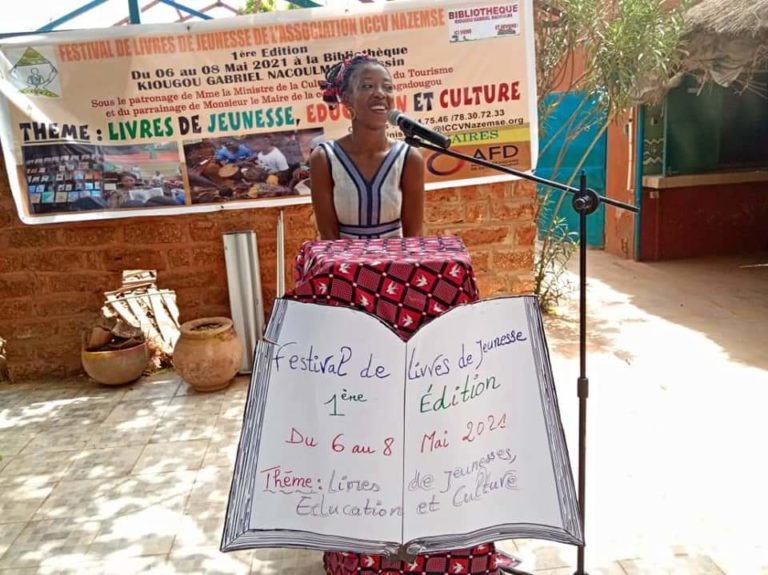 FESTIVAL DE LIVRES DE JEUNESSE DE L'ASSOCIATION ICCV NAZEMSE
1ère Edition
Du 06 au 08 Mai 2021 à la Bibliothèque
KIOUGOU GABRIEL NACOULM
Sous le patronage de Mme la Ministre de la Cul du Tourisme
et du parrainage de Monsieur le Maire de la co agadougou
THEME : LIVRES DE JEUNESSE, EDUCATION ET CULTURE
BIBLIOTHEQUE
KIOUGOU GABRIEL NACOULMA
.75.46 /78.30.72.33
@ICCVNazemse.org
AIRES
AFD
Festival de Livres de Jeunesse
1ère Édition
Du 6 au 8 Mai 2021
Thème : Livres de Jeunesses,
Education et Culture